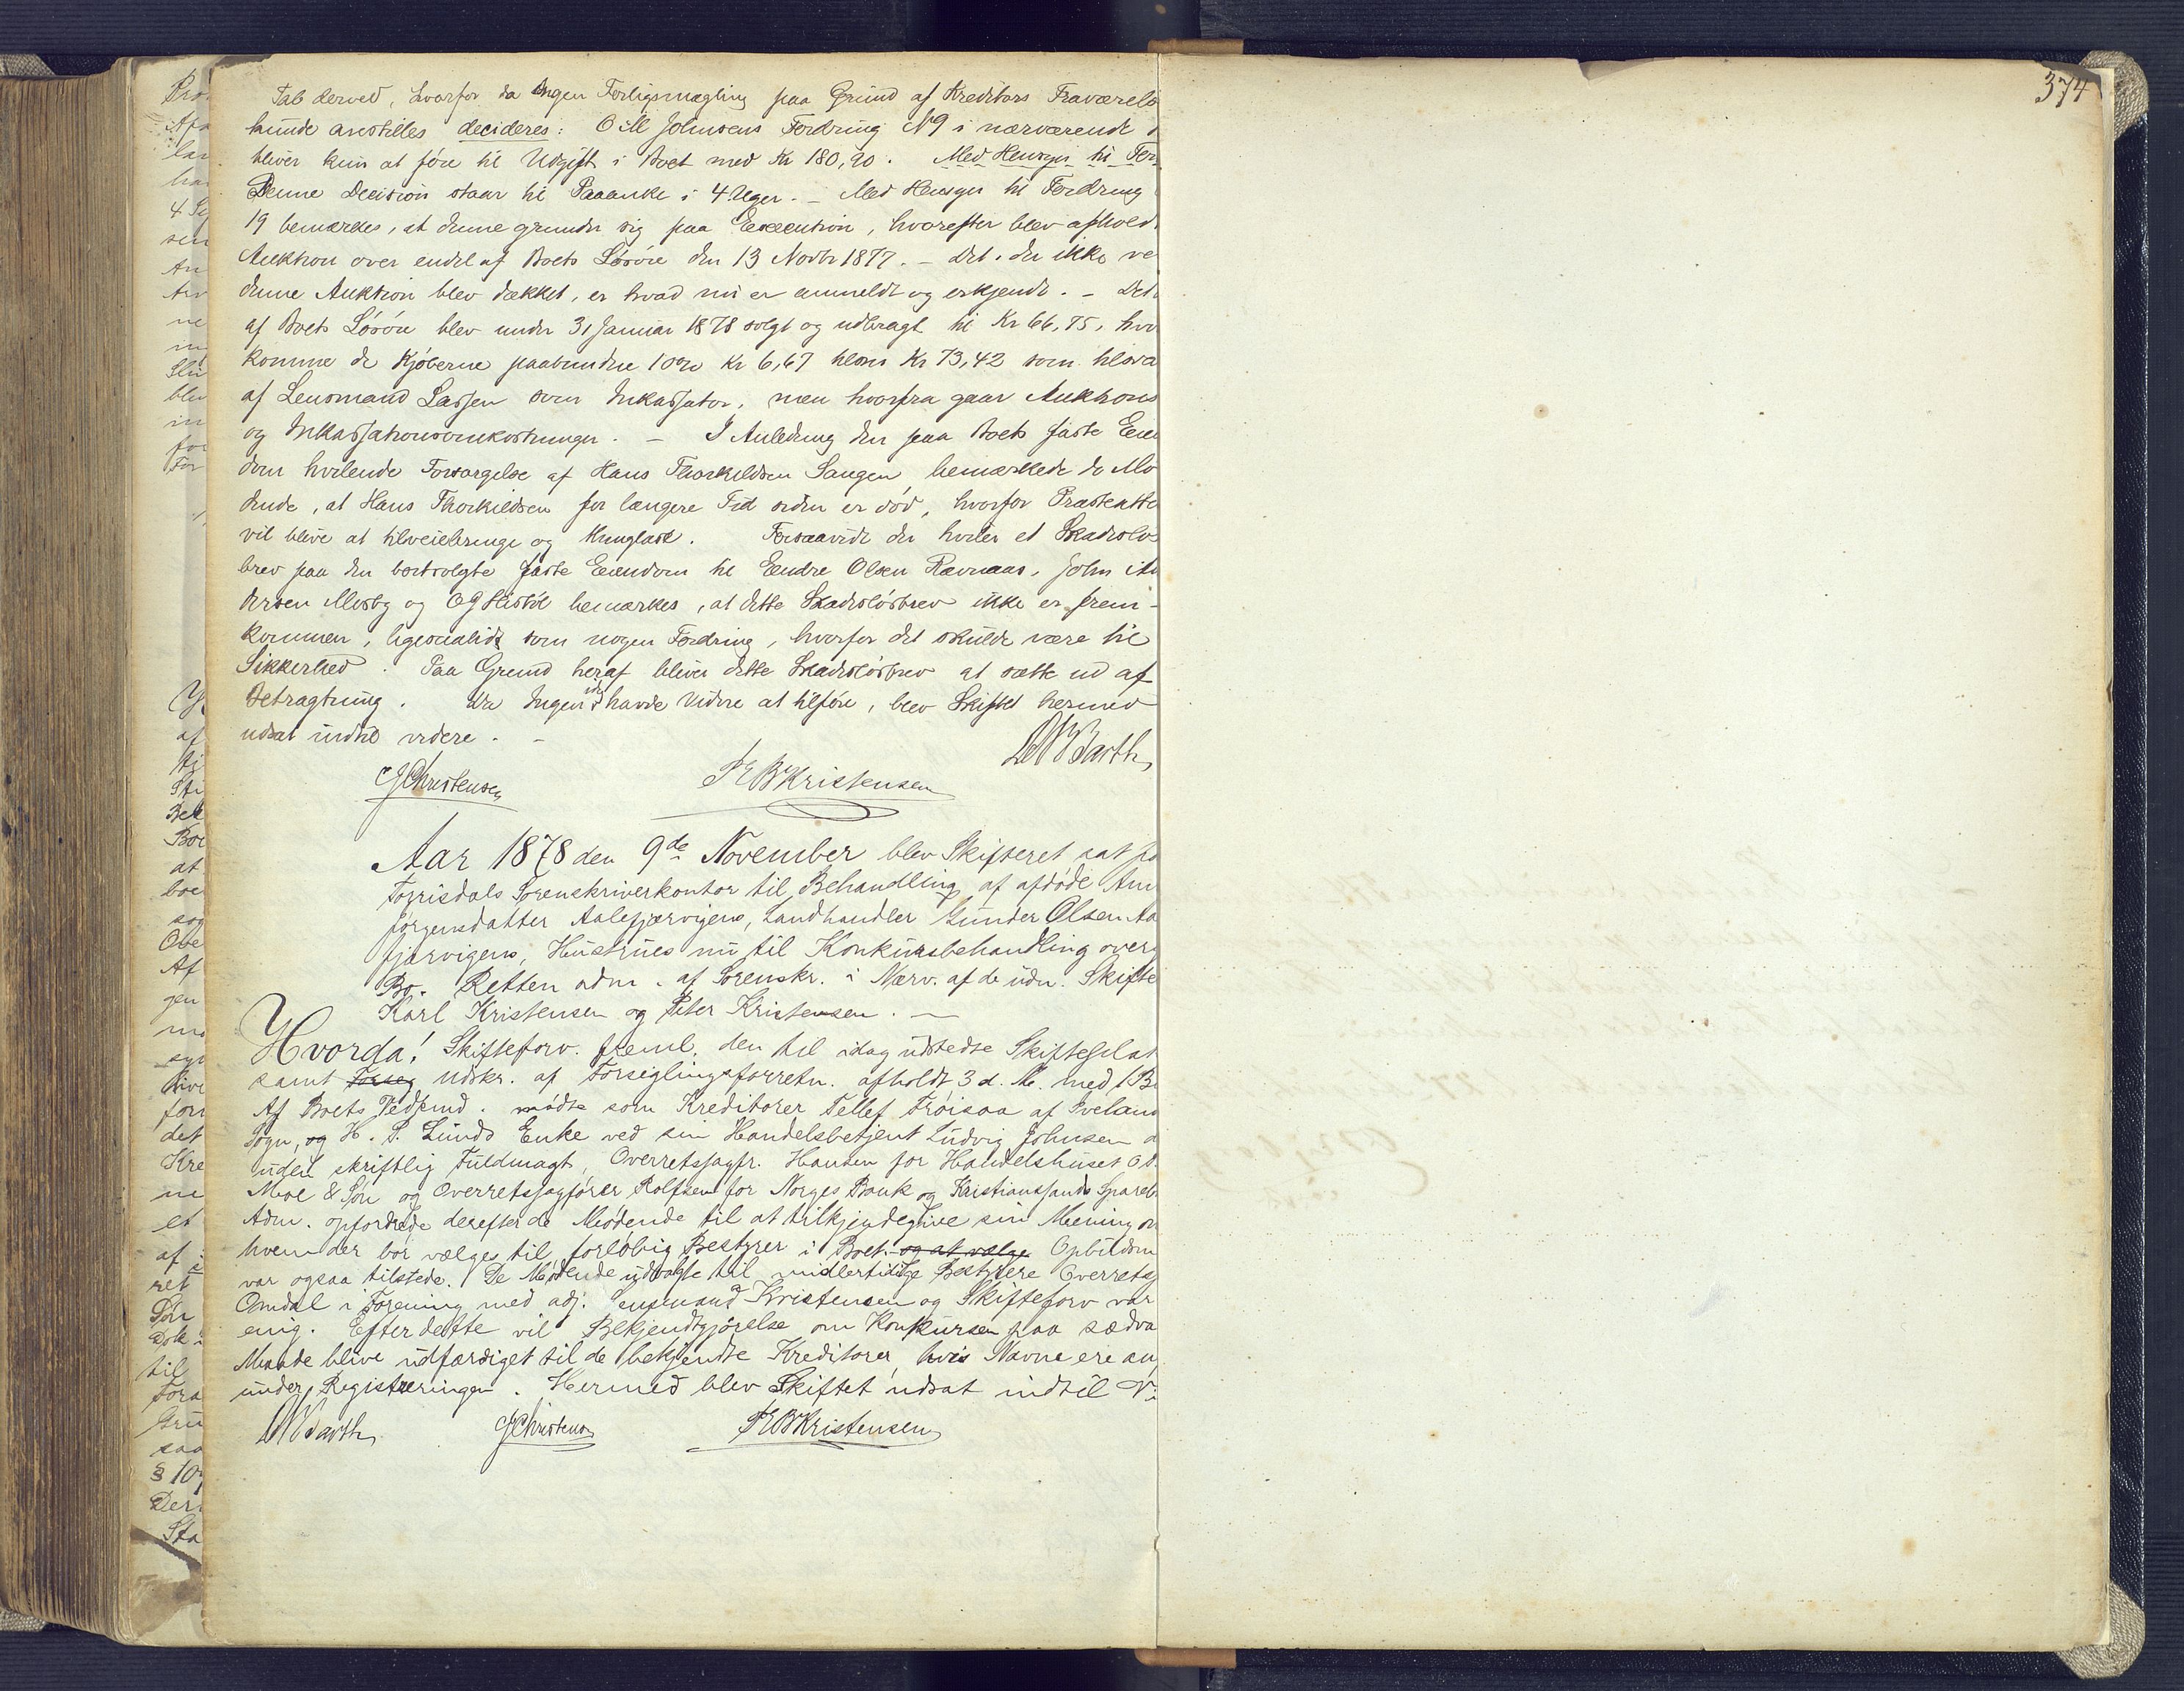 374
Tab derved, hvorfor da Ingen Forligsmægling paa Grund af Kreditors Fraværels
kunde anstilles decideres: O M Johnsens Fordring N 9 i nærværende
bliver kun at føre til Udgift i Boet med Kr 180,90. Med Hensyn til For
Denne Decision staar til Paaanke i 4 Uger. – Med Hensyn til Fordring
19 bemærkes, at denne grunder sig paa Execution, hvorefter blev afhold
Auktion over endel af Boets Løsøre den 13 Novbr 1877. – Det, der ikke ve
denne Auktion blev dækket, er hvad nu er anmeldt og erkjendt. – Det
af Boets Løsøre blev under 31 Januar 1878 solgt og udbragt til Kr 66,75, hvo
komme de Kjøberne paabundne 10% Kr 6,67 tilsms Kr 73,42 som tilsva
af Lensmand Lassen som Inkassator, men hvorfra gaar Auktions
og Inkassationsomkostninger. – I Anledning den paa Boets faste Eien
dom hvilende Forsørgelse af Hans Thorkildsen Sangen bemærkede de Mø
dende, at Hans Thorkildsen for længere Tid siden er død, hvorfor Præsteatte
vil blive at tilveiebringe og thinglæst. Forsaavidt der hviler et Skadesløs
brev paa den bortsolgte faste Eiendom til Eendre Olsen Ravnaas, John
dersen Mosby og O G bemærkes, at dette Skadesløsbrev ikke er frem-
kommen, ligesaalidt som nogen Fordring, hvorfor det skulde være til
Sikkerhed. Paa Grund heraf bliver dette Skadesløsbrev at sætte ud af
Betragtning. Da Ingen havde Videre at tilføre, blev Skiftet hermed
udsat indtil videre. –
Barth
Christensen P E B Kristensen
Aar 1878 den 9de November blev Skifteret sat p
Torrisdals Sorenskriverkontor til Behandling af afdøde An
Jørgensdatter Aalefjærvigens, Landhandler Gunder Olsen Aa
fjærvigens, Hustrues nu til Konkursbehandling over
Bo. Retten adm. af Sorenskr. i Nærv. af de udn. Skifte
Karl Kristensen og Peter Kristensen. –
Hvorda! Skifteforv. freml. den til idag udstedte Skifte
samt Forseg Udskr. af Forseglingsforretn. afholdt 3 d. M. med 1 B
Af Boets Vedkmd. mødte som Kreditorer Tellef Frøisaa af Iveland
Sogn, og H. P. Lunds Enke ved sin Handelsbetjent Ludvig Johnsen
uden skriftlig Fuldmagt, Overretssagfr. Hansen for Handelshuset O
Moe & Søn og Overretssagfører Rolfsen for Norges Bank og Kristianssands Spareb
Adm. opfordrede derefter de Mødende til at tilkjendegive sin Mening o
hvem der bør vælges til forløbig Bestyrer i Boet. og at vælge Opbudsm
var ogsaa tilstede. De Mødende udvalgte til midlertidige Bestyrere Overretss
Omdal i Forening med adj. Lensmand Kristensen og Skifteforv var
enig. Efter dette vil Bekjendtgjørelse om Konkursen paa sædva
Maade blive udfærdiget til de bekjendte Kreditorer, hvis Navne ere an
under Registreringen. Hermed blev Skiftet udsat indtil Vi
Barth Christensen P E B Kristensen